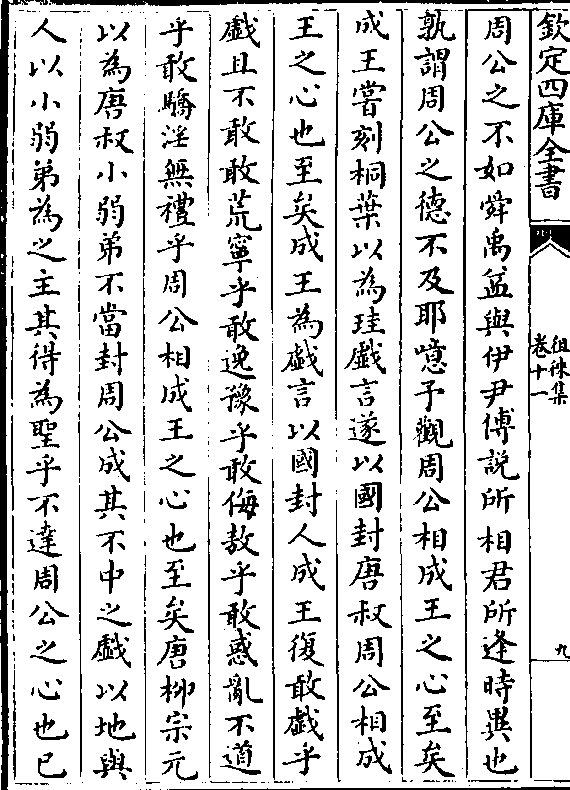 欽定四庫全書
徂徠集
卷十一
九
周公之不如舜禹益與伊尹傅説所相君所逢時異也
孰謂周公之德不及耶噫予觀周公相成王之心至矣
成王嘗刻桐葉以為珪戲言遂以國封唐叔周公相成
王之心也至矣成王為戲言以國封人成王復敢戲乎
戲且不敢敢荒寧乎敢逸豫乎敢侮敖乎敢惑亂不道
乎敢驕淫無禮乎周公相成王之心也至矣唐栁宗元
以為唐叔小弱弟不當封周公成其不中之戲以地與
人以小弱弟為之主其得為聖乎不達周公之心也已